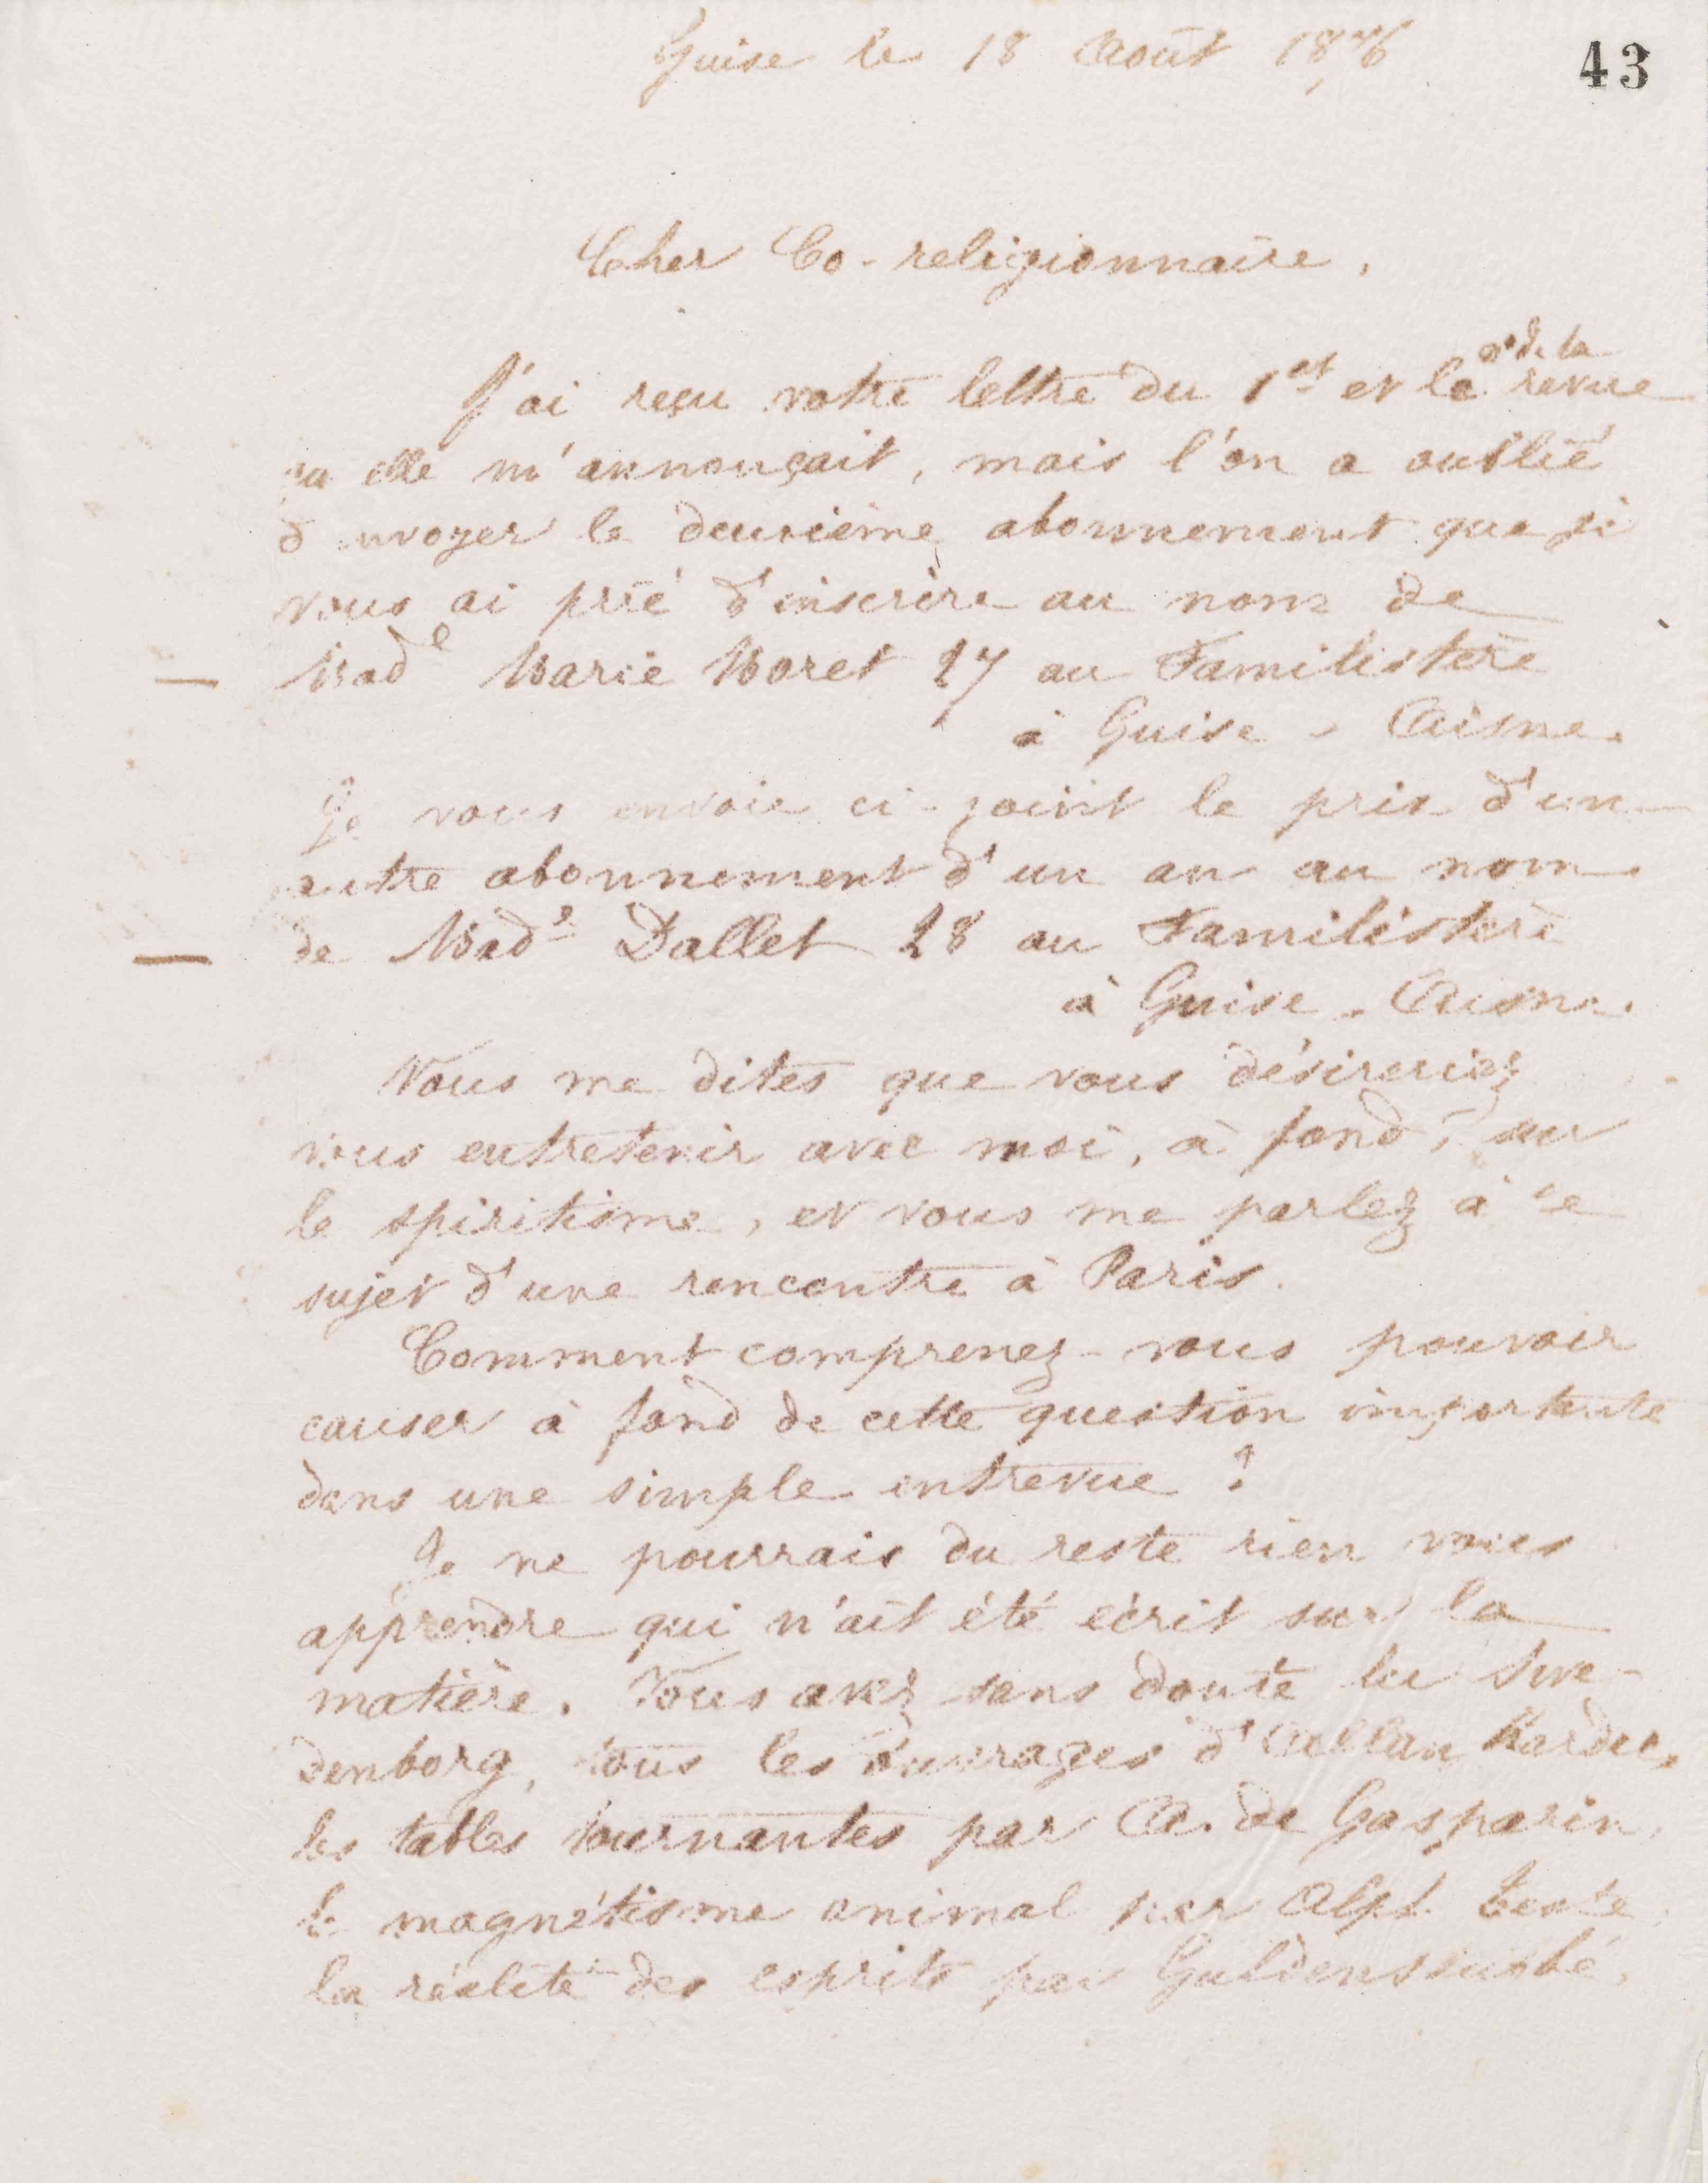 Guise le 18 Août 1876
43
Cher Co-religionnaire,
n° de la
J'ai reçu votre lettre du 1er et le revue
qu'elle m'annonçait, mais l'on a oublié
d'envoyer le deuxième abonnement que je
vous ai prié d'inscrire au nom de
— Made Marie Moret 27 au Familistère
à Guise - Aisne.
Je vous envoie ci-joint le prix d'un
autre abonnement d'un an au nom
— de Made Dallet 28 au Familistère
à Guise - Aisne.
Vous me dites que vous désireriez
vous entretenir avec moi, à fond, sur
le spiritisme, et vous me parlez à ce
sujet d'une rencontre à Paris.
Comment comprenez-vous pouvoir
causer à fond de cette question importante
dans une simple entrevue ?
Je ne pourrais du reste rien vous
apprendre qui n'ait été écrit sur la
matière. Vous avez sans doute lu Swe-
denborg, tous les ouvrages d'Allan Kardec,
les tables tournantes par A. de Gasparin,
le magnétisme animal par Alph. Teste,
la réalité des esprits par Guldenstubbé,